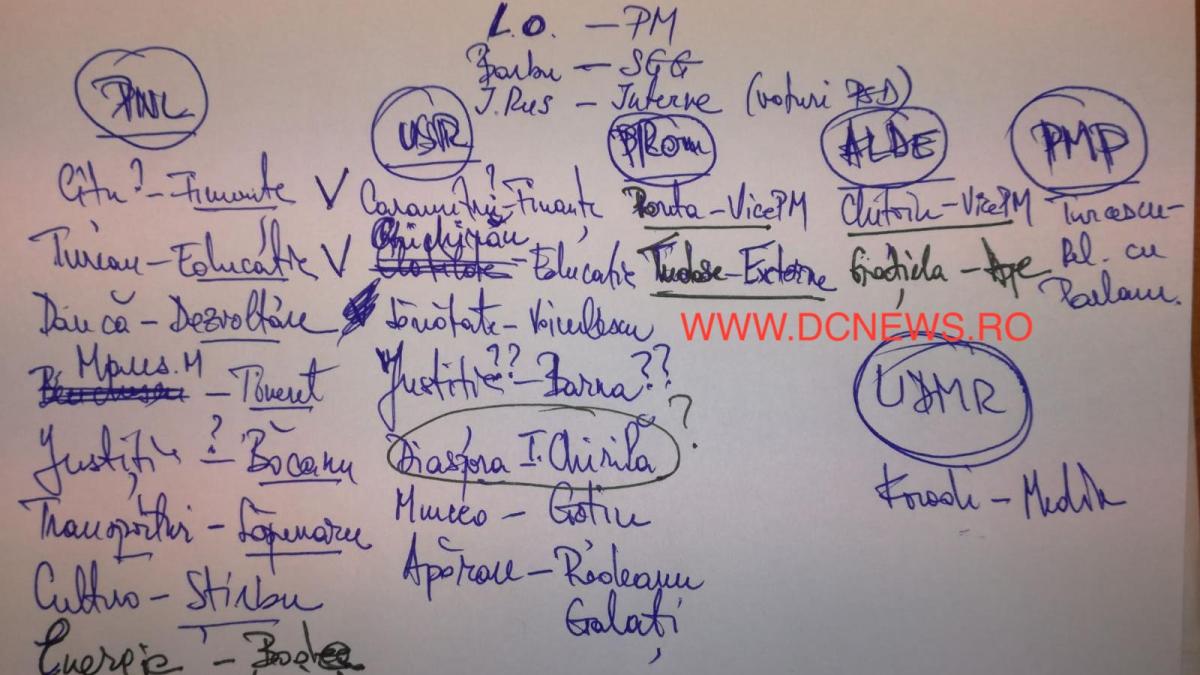 L.O. — PM
Barbu — SGG
I. Rus — Interne (voturi PSD)
PNL
Cîțu ? — Finanțe V
Turcan — Educație V
Dăncă — Dezvoltare
— Tineret
Justiție ? — Bocanu
Transporturi — Săpunaru
Cultură — Știrbu
Energie —
USR
Caramitru ? — Finanțe
Ghighinău
— Educație
Sănătate — Voiculescu
Justiție ?? — Barna ??
Diaspora I. Chirilă ?
Muncă — Ghetiu
Apărare — Rădeanu
Galați
PRom
Ponta — Vice PM
Tudose — Externe
ALDE
Chițoiu — Vice PM
Grațiela — Ape
PMP
Turcescu —
Rel. cu
Parlam.
WWW.DCNEWS.RO
UDMR
Korodi — Mediu